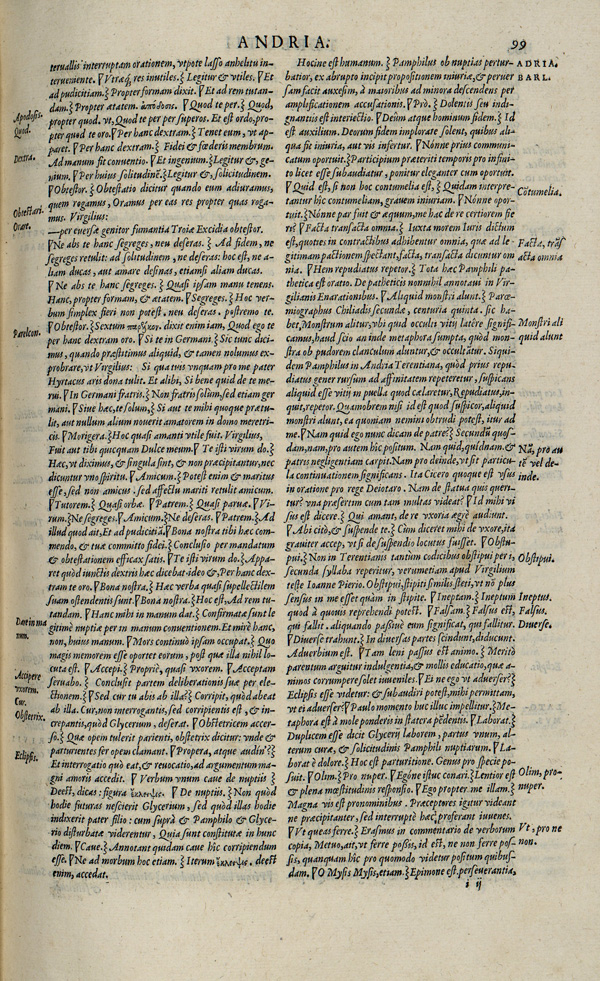 ANDRIA.
99
teruallis interruptam orationem, vtpote lasso anhelitu in-
terueniente. ∇Vtraq́; res inutiles.⸹ Legitur & vtiles. ∇Et
ad pudicitiam.⸹ Propter formam dixit. ∇Et ad rem tutan-
dam.⸹ Propter ætatem. ∇Quod te per.⸹ Quod,
propter quod. vt, Quod te per per superos. Et est ordo, pro-
pter quod te oro. ∇Per hanc dextram.⸹ Tenet eum, vt ap-
paret. ∇Per hanc dextram.⸹ Fidei & fœderis membrum.
Ad manum fit conuentio. ∇Et ingenium.⸹ Legitur &, ge-
nium. ∇Per huius solitudinē.⸹ Legitur &, solicitudinem.
∇Obtestor.⸹ Obtestatio dicitur quando eum adiuramus,
quem rogamus, Oramus per eas res propter quas roga-
mus. Virgilius:
—per euersæ genitor fumantia Troiæ Excidia obtestor.
∇Ne abs te hanc segreges, neu deseras.⸹ Ad fidem, ne
segreges retulit: ad solitudinem, ne deseras: hoc est, ne a-
liam ducas, aut amare desinas, etiamsi aliam ducas.
∇Ne abs te hanc segreges.⸹ Quasi ipsam manu tenens.
Hanc, propter formam, & ætatem. ∇Segreges.⸹ Hoc ver-
bum simplex fieri non potest. neu deseras. postremo te.
∇Obtestor.⸹ Sextum dixit enim iam, Quod ego te
per hanc dextram oro. ∇Si te in Germani.⸹ Sic tunc dici-
mus, quando præstitimus aliquid, & tamen nolumus ex-
probrare, vt Virgilius: Si qua tuis vnquam pro me pater
Hyrtacus aris dona tulit. Et alibi, Si bene quid de te me-
rui. ∇In Germani fratris.⸹ Non fratris solum, sed etiam ger
mani. ∇Siue hæc, te solum,⸹ Si aut te mihi quoque prætu-
lit, aut nullum alium nouerit amatorem in domo meretri-
cis. ∇Morigera.⸹ Hoc quasi amanti vtile fuit. Virgilius,
Fuit aut tibi quicquam Dulce meum. ∇Te isti virum do.⸹
Hæc, vt diximus, & singula sunt, & non præcipitantur, nec
dicuntur vno spiritu. ∇Amicum.⸹ Potest enim & maritus
esse, sed non amicus. sed affectu mariti retulit amicum.
∇Tutorem.⸹ Quasi orbæ. ∇Patrem.⸹ Quasi paruæ. ∇Vi-
rum.⸹ Ne segreges. ∇Amicum.⸹ Ne deseras. ∇Patrem.⸹ Ad
illud quod ait, Et ad pudicitiā. ∇Bona nostra tibi hæc com-
mendo, & tuæ committo fidei.⸹ Conclusio per mandatum
& obtestationem efficax satis. ∇Te isti virum do.⸹ Appa-
ret quòd iunctis dextris hæc dicebat ideo &, Per hanc dex-
tram te oro. ∇Bona nostra.⸹ Hæc verba quasi supellectilem
suam ostendentis sunt. ∇Bona nostra.⸹ Hoc est, Ad rem tu-
tandam. ∇Hanc mihi in manum dat.⸹ Confirmatæ sunt le
gitimæ nuptiæ per in manum conuentionem. Et mirè hanc,
non, huius manum. ∇Mors continuò ipsam occupat.⸹ Quo
magis memorem esse oportet eorum, post quæ illa nihil lo-
cuta est. ∇Accepi.⸹ Propriè, quasi vxorem. ∇Acceptam
seruabo.⸹ Conclusit partem deliberationis suæ per ele-
ctionem.⸹ ∇Sed cur tu abis ab illa?⸹ Corripit, quòd abeat
ab illa. Cur, non interrogantis, sed corripientis est, & in-
crepantis, quòd Glycerium, deserat. ∇Obstetricem accer-
so.⸹ Quæ opem tulerit parienti, obstetrix dicitur: vnde &
parturientes fer opem clamant. ∇Propera, atque audin'?⸹
Et interrogatio quò eat, & reuocatio, ad argumentum ma-
gni amoris accedit. ∇Verbum vnum caue de nuptiis⸹
Deest, dicas: figura ∇De nuptiis.⸹ Non quòd
hodie futuras nescierit Glycerium, sed quòd illas hodie
indixerit pater filio: cum suprà & Pamphilo & Glyce-
rio disturbatæ viderentur, Quia sunt constitutæ in hunc
diem. ∇Caue.⸹ Annotant quidam caue hic corripiendum
esse. ∇Ne ad morbum hoc etiam.⸹ Iterum deest
enim, accedat.
Apodosis.
Quod.
Dextra.
Obtestari.
Orare.
Parelcon.
Dare in ma
num.
Accipere
vxorem.
Cur.
Obstetrix.
Eclipsis.
Hocine est humanum.⸹ Pamphilus ob nuptias pertur-
batior, ex abrupto incipit propositionem iniuriæ, & peruer
sam facit auxesim, à maioribus ad minora descendens per
amplificationem accusationis. ∇Prò.⸹ Dolentis seu indi-
gnantis est interiectio. ∇Deûm atque hominum fidem.⸹ Id
est auxilium. Deorum fidem implorate solent, quibus ali-
qua fit iniuria, aut vis infertur. ∇Nónne prius communi-
catum oportuit.⸹ Participium præteriti temporis pro infini-
to licet esse subaudiatur, ponitur eleganter cum oportuit.
∇Quid est, si non hoc contumelia est,⸹ Quidam interpre-
tantur hic contumeliam, grauem iniuriam. ∇Nónne opor-
tuit.⸹ Nónne par fuit & æquum, me hac de re certiorem fie
ri? ∇Facta transacta omnia.⸹ Iuxta morem Iuris dictum
est, quoties in contractibus adhibentur omnia, quæ ad le-
gitimam pactionem spectant, facta, transacta dicuntur om
nia. ∇Hem repudiatus repetor.⸹ Tota hæc Pamphili pa-
thetica est oratio. De patheticis nonnihil annotaui in Vir-
gilianis Enarrationibus. ∇Aliquid monstri alunt.⸹ Parœ-
miographus Chiliadis secundæ, centuria quinta. sic ha-
bet, Monstrum alitur, vbi quid occulti vitij latere signifi-
camus, haud scio an inde metaphora sumpta, quòd mon-
stra ob pudorem clanculum aluntur, & occultātur. Siqui-
dem Pamphilus in Andria Terentiana, quòd prius repu-
diatus gener rursum ad affinitatem repeteretur, suspicans
aliquid esse vitij in puella quod cælaretur, Repudiatus, in-
quit, repetor. Quamobrem nisi id est quod suspicor, aliquid
monstri alunt, ea quoniam nemini obtrudi potest, itur ad
me. ∇Nam quid ego nunc dicam de patre?⸹ Secundū quos-
dam, nam, pro autem hîc positum. Nam quid, quidnam, &
patris negligentiam carpit. Nam pro deinde, vt sit particu-
la continuationem significans. Ita Cicero quoque est vsus
in oratione pro rege Deiotaro. Nam de statua quis queri-
tur? vna præsertim cum tam multas videat? ∇Id mihi vi
sus est dicere.⸹ Qui amant, de re vxoria ægrè audiunt.
∇Abi citò, & suspende te.⸹ Cum diceret mihi de vxore, ita
grauiter accepi, vt si de suspendio locutus fuisset. ∇Obstu-
pui.⸹ Non in Terentianis tantum codicibus obstipui per i,
secunda syllaba reperitur, verumetiam apud Virgilium
teste Ioanne Pierio. Obstipui, stipiti similis steti, vt nō plus
sensus in me esset quàm in stipite. ∇Ineptam.⸹ Ineptum
quod à quouis reprehendi potest. ∇Falsam.⸹ Falsus est,
qui fallit. aliquando passiuè eum significat, qui fallitur.
∇Diuersè trahunt.⸹ In diuersas partes scindunt, diducunt.
Aduerbium est. ∇Tam leni passus est animo.⸹ Meritò
parentum arguitur indulgentia, & mollis educatio, quæ a-
nimos corrumpere solet iuueniles. ∇Ei ne ego vt aduerser?⸹
Eclipsis esse videtur: & subaudiri potest, mihi permittam,
vt ei aduerser? ∇Paulo momento huc illuc impellitur.⸹ Me-
taphora est à mole ponderis in statera pēdentis. ∇Laborat.⸹
Duplicem esse dicit Glycerij laborem, partus vnum, al-
terum curæ, & solicitudinis Pamphili nuptiarum. ∇La-
borat è dolore.⸹ Hoc est parturitione. Genus pro specie po-
suit. ∇Olim.⸹ Pro nuper. ∇Egóne istuc conari.⸹ Lentior est
& plena mœstitudinis responsio. ∇Ego propter me illam.⸹
Magna vis est pronominibus. Præceptores igitur videant
ne præcipitanter, sed interruptè hæc proferant iuuenes.
∇Vt queas ferre.⸹ Erasmus in commentario de verborum
copia, Metuo, ait, vt ferre possis, id est, ne non ferre pos-
sis, quanquam hic pro quomodo videtur positum quibus-
dam. ∇O Mysis Mysis, etiam.⸹ Epimone est, perseuerantia,
i ij
ADRIA.
BARL.
Cōtumelia.
Facta, trās
acta omnia
Monstri ali
quid alunt
Nā, pro au
tē vel de-
inde.
Obstipui.
Ineptus.
Falsus.
Diuerse.
Olim, pro
nuper.
Vt, pro ne
non.